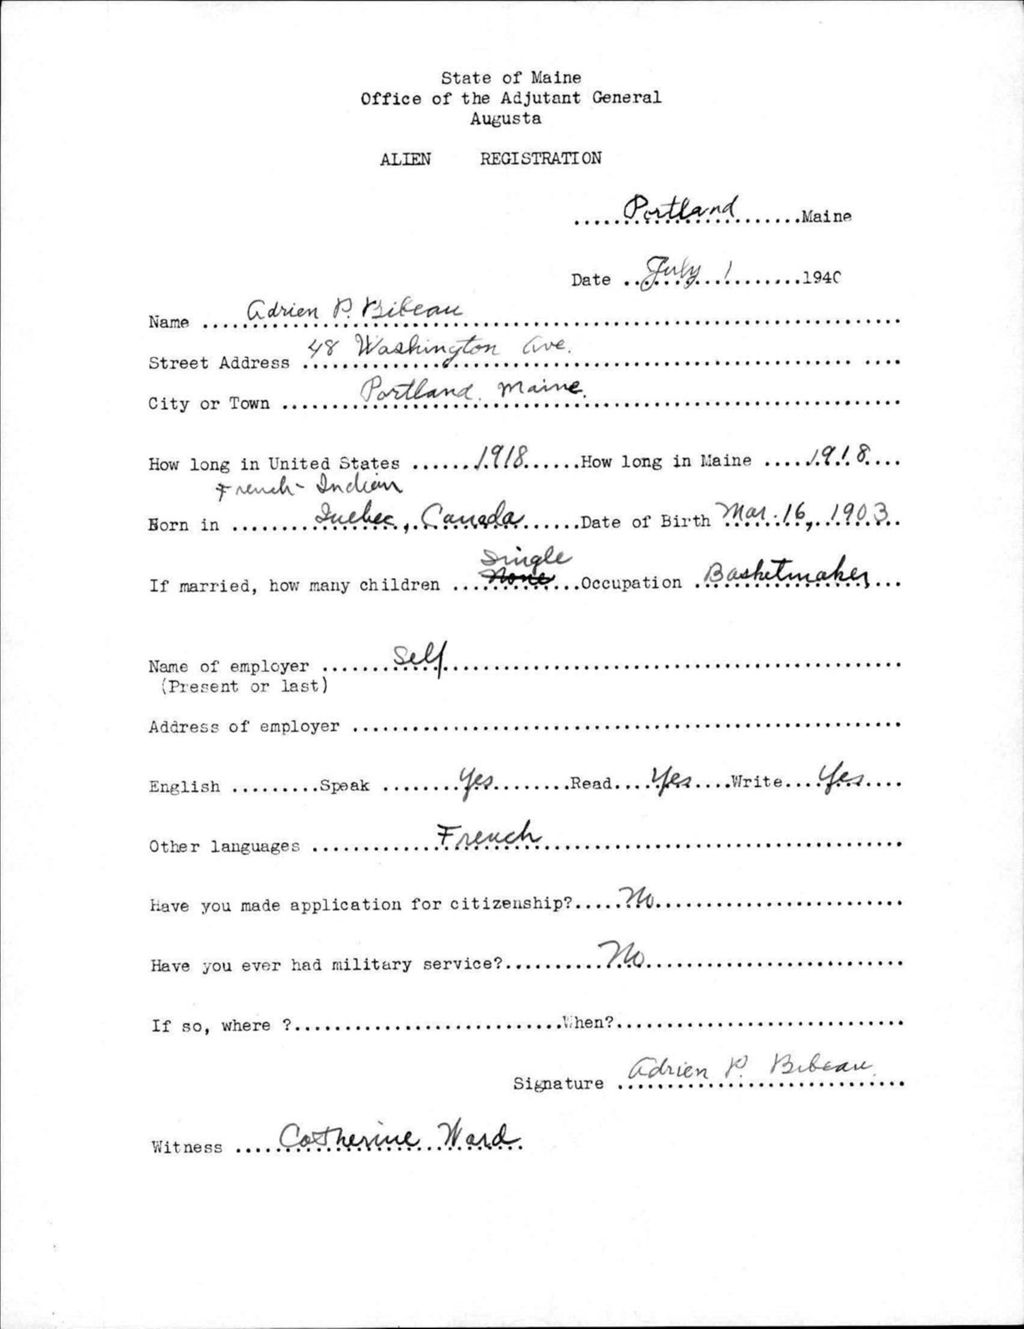 State of Maine
Office of the Adjutant General
Augusta
ALIEN REGISTRATION
.....Portland.......Maine
Date ..July 1.........1940
Name .....Adrien P. Bibeau.....
Street Address .....48 Washington Ave......
City or Town .....Portland, Maine......
How long in United States ......1918......How long in Maine ....1918....
French-Indian
Born in ........Quebec, Canada......Date of Birth Mar. 16, 1903..
Single
If married, how many children ...None...Occupation .Basketmaker...
Name of employer .......Self.....
(Present or last)
Address of employer .....
English .........Speak ........Yes.........Read....Yes....Write....Yes....
Other languages ............French.....
Have you made application for citizenship?.....No.....
Have you ever had military service?..........No.....
If so, where ?..........................When?.....
Signature .....Adrien P. Bibeau......
Witness ....Catherine Ward.